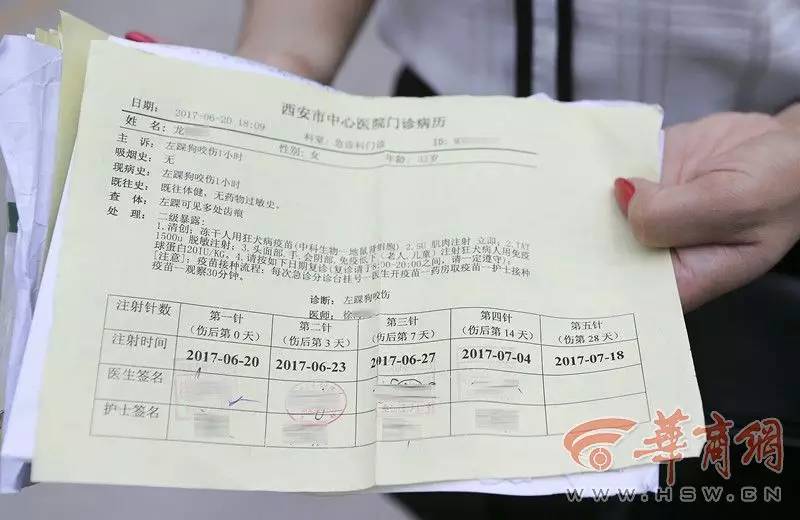 西安市中心医院门诊病历
日期: 2017-06-20 18:09
姓名: 龙 科室: 急诊科门诊 ID:
性别: 女 年龄: 32岁
主诉: 左踝狗咬伤1小时
吸烟史: 无
现病史: 左踝狗咬伤1小时
既往史: 既往体健,无药物过敏史。
查体: 左踝可见多处齿痕
处理: 二级暴露:
1.清创;冻干人用狂犬病疫苗(中科生物--地鼠肾细胞) 2.5U 肌肉注射 立即; 2.TAT
1500u 脱敏注射; 3.头面部、手、会阴部、免疫低下(老人、儿童)注射狂犬病人用免疫
球蛋白20IU/KG。4.请按如下日期复诊(复诊请于8:00-20:00之间,请一定遵守);
[注意]:疫苗接种流程:每次急诊分诊台挂号--医生开疫苗--药房取疫苗--护士接种
疫苗--观察30分钟。
诊断: 左踝狗咬伤
医师: 徐
注射针数 第一针 (伤后第 0 天) 第二针 (伤后第 3 天) 第三针 (伤后第 7 天) 第四针 (伤后第 14 天) 第五针 (伤后第 28 天)
注射时间 2017-06-20 2017-06-23 2017-06-27 2017-07-04 2017-07-18
医生签名
护士签名
華商網
WWW.HSW.CN